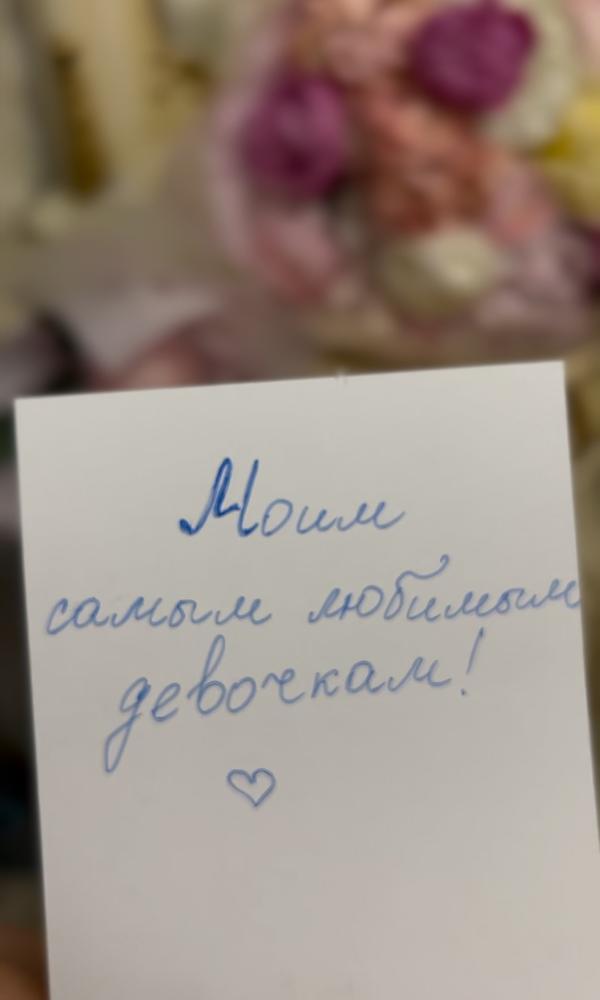 Моим
самым любимым
девочкам!
♡